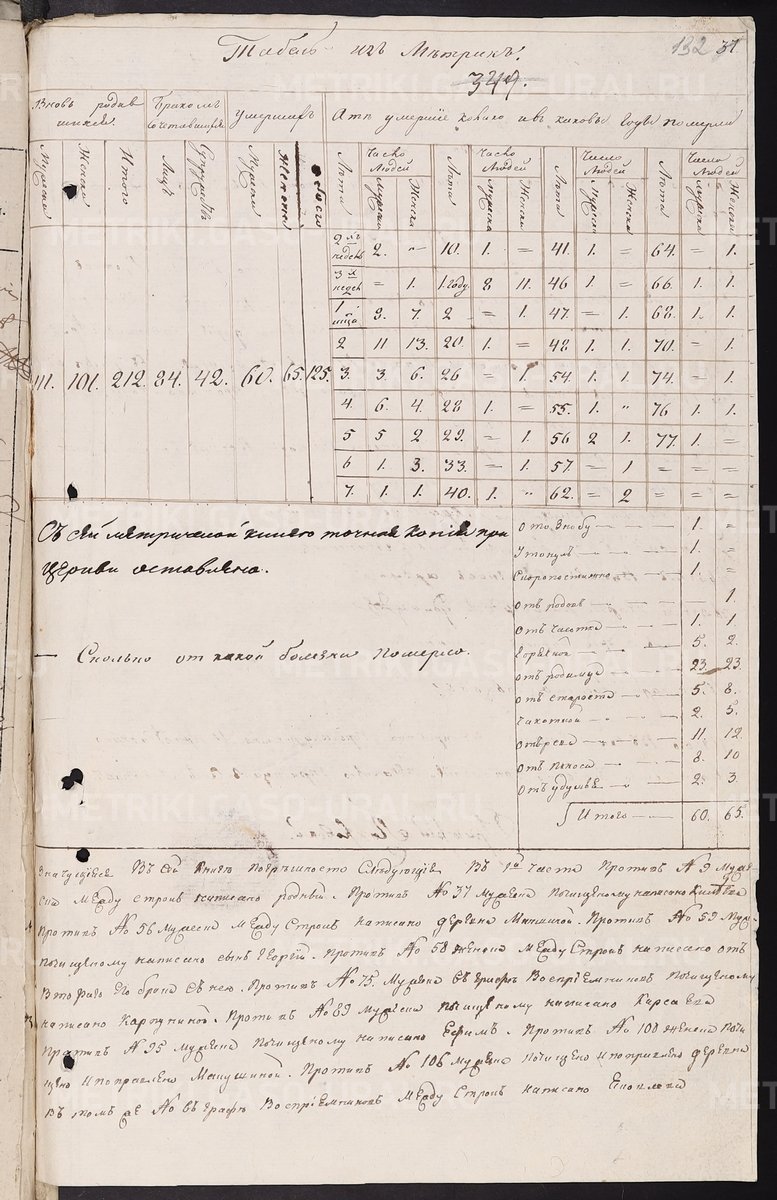 132 37
Табель изъ Метрикъ.
347.
Вновь родив Бракомъ умершихъ А тѣ умершіе колико и въ каковые годы померли
шихся. сочетавшихся
Числo Людей Число Людей Число Людей Число Людей
Мужеска Женска Итого Лицъ Супружествъ Мужеска Женска обоего Лѣта мужска Женска Лѣта мужска Женска Лѣта Мужска Женска Лѣта мужска Женска
2 хъ недель 2. " 10. 1. = 41. 1. = 64. = 1.
3 х недел = 1. 1. году. 8 11. 46 1. = 66. 1. 1.
1 мца 8. 7. 2 = 1. 47. = 1. 68. 1. 1.
2 11 13. 20. 1. = 48 1. 1. 70. = 1.
111. 101. 212. 84. 42. 60. 65. 125. 3. 3. 6. 26 = 1. 54. 1. 1. 74. = 1.
4. 6. 4. 28 1. = 55. 1. " 76 1. 1.
5 5 2 29. = 1. 56 2 1. 77. 1. =
6 1. 3. 33. = 1. 57. = 1 = = =
7. 1. 1. 40. 1. " 62. = 2 = = =
Съ сей метрической книги точная копія при
церкви оставлена.
Сколько от какой болезни померло.
от ознобу 1. =
Утонулъ 1. =
Скоропостижно 1. =
отъ родовъ — 1
отъ чахотки 1. 1
горячкой 5. 2.
отъ родимца 23. 23.
отъ старости 5. 8.
чахоткой 2. 5.
отъ рева 11. 12
отъ поноса 8. 10
отъ удушья 2. 3.
Итого 60. 65.
Значущіеся Въ сей книге погрѣшности Следующія Въ 1й части Противъ № 9 Муже
ска между строкъ написано родный. Противъ № 37 мужеска почищеному написано
Противъ № 56 мужеска между строкъ написано деревни. Противъ № 59 муж.
почищеному написано сынъ Георгій. Противъ № 58 женска между строкъ написано отъ
втораго его брака съ нею. Противъ № 75. Мужеска въ графѣ Воспріемниковъ почищеному
написано Карпушиной. Противъ № 89 мужеска почищеному написано
Противъ № 95 мужеска почищеному написано Ефимъ. Противъ № 100 женска почи
щено и поправлено. Противъ № 106 мужеска почищено и поправлено деревни
въ томъ же № въ графѣ Воспріемниковъ между строкъ написано